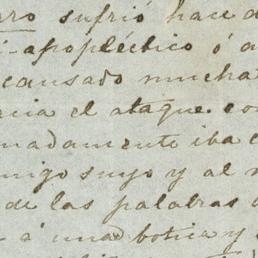 rro sufrió hace d
i-apopléctico ó a
causado mucha
cia el ataque co
madamente iba c
migo suyo y al
de las palabras
á una botica y